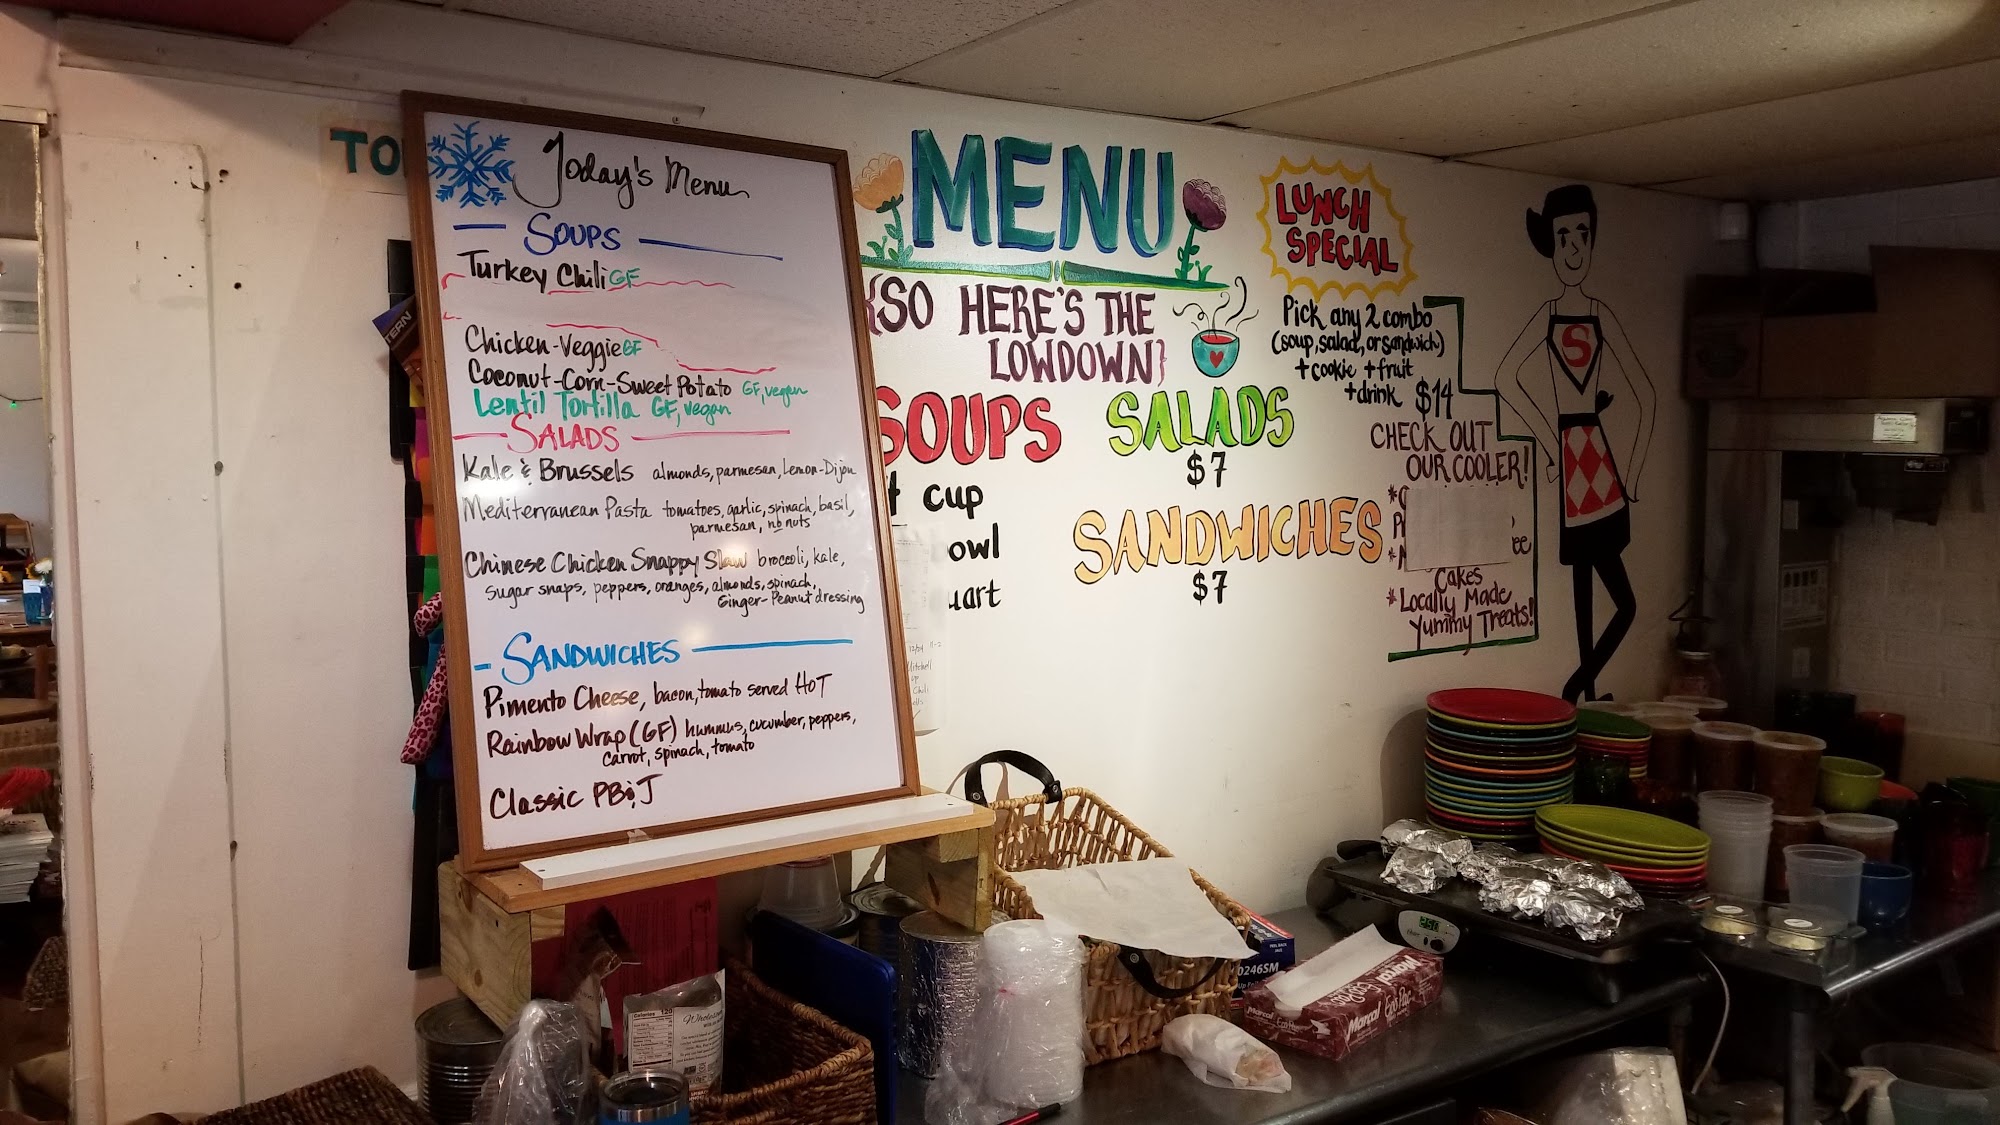 TO
Today's Menu
SOUPS
Turkey Chili GF
Chicken-Veggie GF
Coconut-Corn-Sweet Potato GF, vegan
Lentil Tortilla GF, vegan
SALADS
Kale & Brussels almonds, parmesan, Lemon-Dijon
Mediterranean Pasta tomatoes, garlic, spinach, basil,
parmesan, no nuts
Chinese Chicken Snappy Slaw broccoli, kale,
sugar snaps, peppers, oranges, almonds, spinach,
Ginger-Peanut dressing
SANDWICHES
Pimento Cheese, bacon, tomato served HOT
Rainbow Wrap (GF) hummus, cucumber, peppers,
carrot, spinach, tomato
Classic PB&J
MENU
{SO HERE'S THE
LOWDOWN}
SOUPS
cup
owl
uart
SALADS
$7
SANDWICHES
$7
LUNCH
SPECIAL
Pick any 2 combo
(soup, salad, or sandwich)
+ cookie + fruit
+ drink $14
CHECK OUT
OUR COOLER!
Cakes
* Locally Made
Yummy Treats!
S
12/24
Mitchell
Chili
TERN
Calories 120
0246SM
Marcal Eco Pac
250